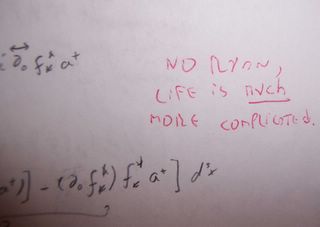 i ∂₀ f_k^* a⁺
NO RYAN,
LIFE IS MUCH
MORE COMPLICTED.
a⁺)] - (∂₀ f_k^*) f_k^* a⁺ ] d³x